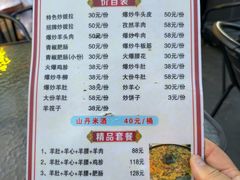 价目表
特色炒拨拉 30元/份
招牌炒拨拉 50元/份
爆炒羊头肉 58元/份
青椒肥肠 50元/份
青椒肥肠(小) 30元/份
火爆鸡胗 38元/份
爆炒牛柳 38元/份
爆炒羊肚 38元/份
大份羊肚 58元/份
羊筏子 30元/份
爆炒牛头皮 38元/份
孜然羊肉 38元/份
爆炒牛板筋 38元/份
大爆腰花 38元/份
爆炒牛肚 38元/份
大份牛肚 58元/份
炒羊心 30元/份
炒饼子 5元/份
山丹米酒 40元/桶
精品套餐
1、羊肚+羊心+羊腰+羊肉 88元
2、羊肚+羊心+羊腰+鸡胗 118元
3、羊肚+羊心+羊腰+肥肠 128元